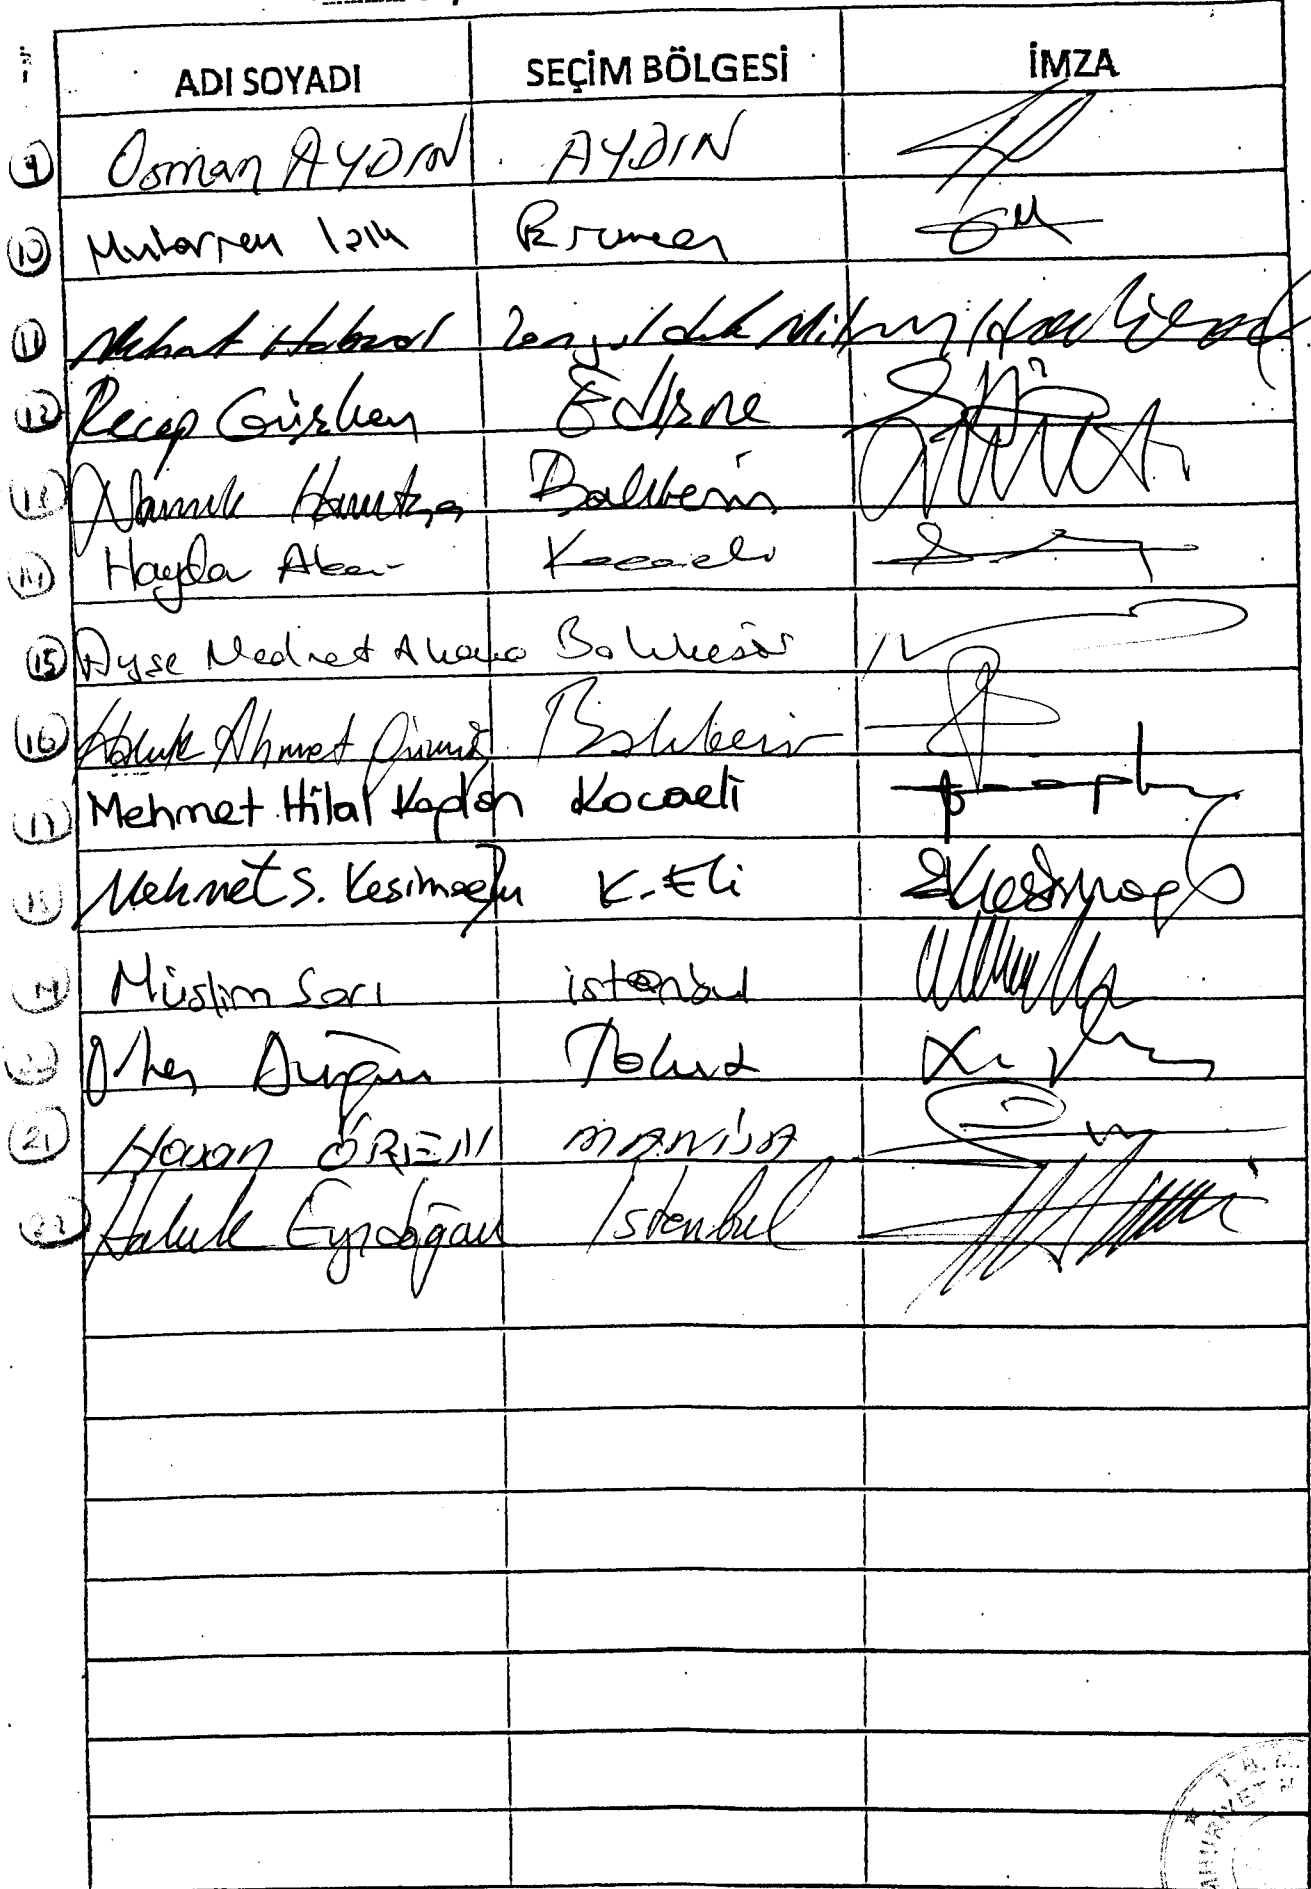 ADI SOYADI SEÇİM BÖLGESİ İMZA
9 Osman AYDIN AYDIN
10 Muharrem Işık Erzincan
11 Mehmet Haberal Zonguldak Mil
12 Recep Gürkan Edirne
13 Namık Havutça Balıkesir
14 Haydar Akar Kocaeli
15 Ayşe Nedret Akova Balıkesir
16 Haluk Ahmet Gümüş Balıkesir
17 Mehmet Hilal Kaplan Kocaeli
18 Mehmet S. Kesimoğlu K.Eli
19 Müslim Sarı istanbul
20 Orhan Düzgün Tokat
21 Hasan ÖREN MANİSA
22 Haluk Eyidoğan İstanbul
T.B.M.